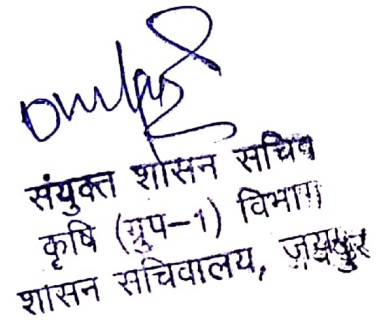 संयुक्त शासन सचिव
कृषि (ग्रुप-1) विभाग
शासन सचिवालय, जयपुर